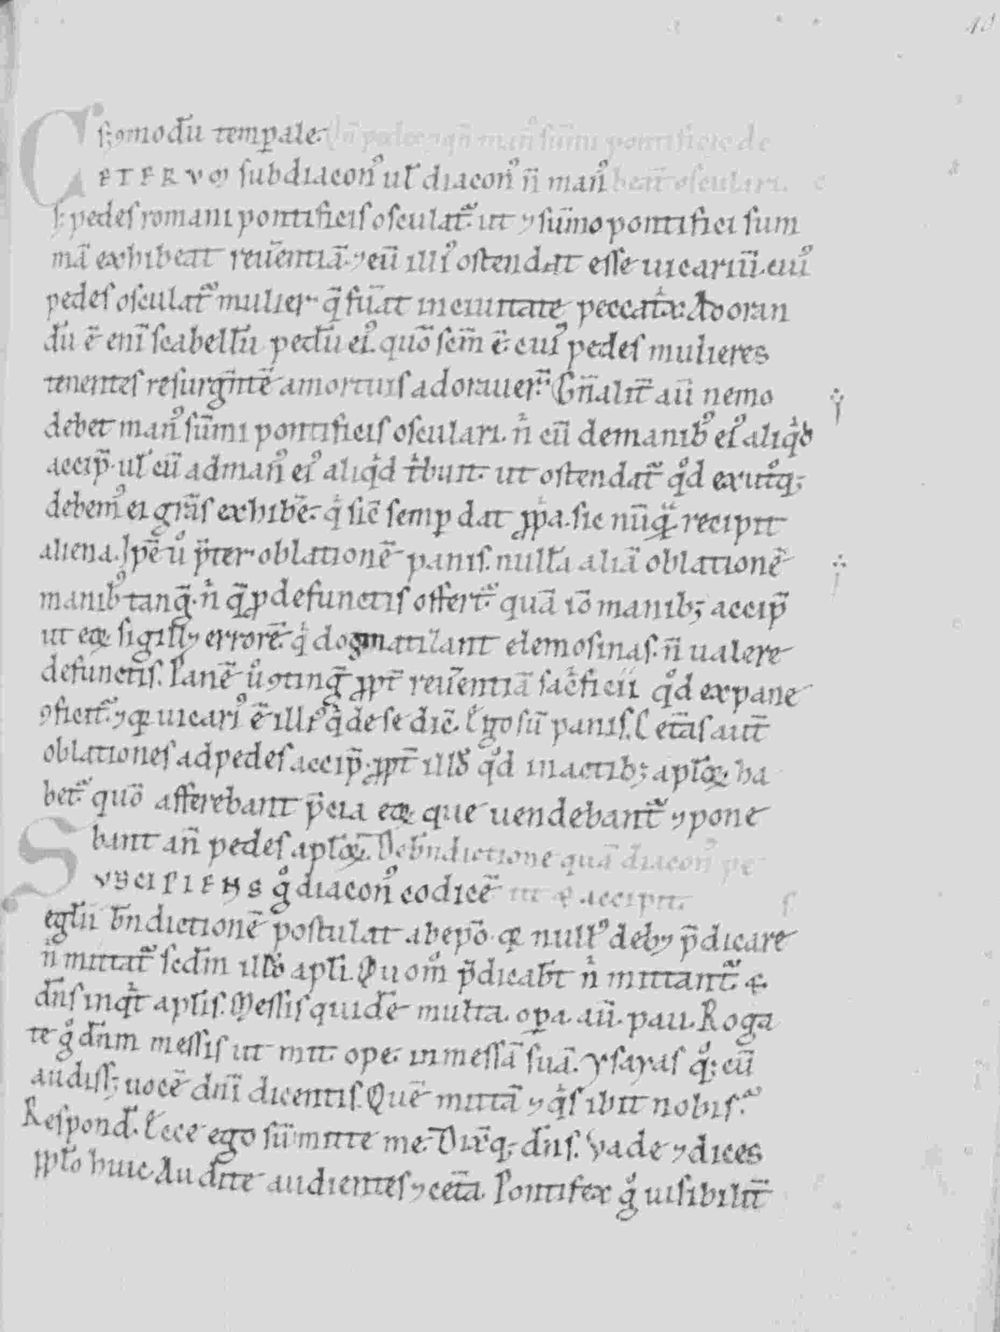 s; ꝯmodũ temꝑale. Qd̃ pedes ⁊ qñ manꝰ sũmi pontificis de
CETERVM subdiaconꝰ ul̃ diaconꝰ ñ manꝰ beat̃ osculari.
s; pedes romani pontificis osculat̃. ut ⁊ sũmo pontifici sum
mã exhibeat reuẽntiã. ⁊ eũ illiꝰ ostendat esse uicariũ. cuiꝰ
pedes osculat̃ mulier. q̃ fũat in ciuitate peccat̃x. Adoran
dũ ẽ enĩ scabellũ pedũ eiꝰ. quõ sc̃m ẽ. cuiꝰ pedes mulieres
tenentes resurgñtẽ a mortuis adorauer̃. Gñalit̃ aũ nemo
debet manꝰ sũmi pontificis osculari. ñ cũ de manibꝰ eiꝰ aliqͥd
accip̃. ul̃ cũ ad manꝰ eiꝰ aliqͥd tͥbuit. ut ostendat̃ qͦd ex utͦq;
debemꝰ ei grãs exhibẽ. qͥ sic̃ semꝑ dat ꝓp̃a. sic nũq̃ recipit
aliena. Ip̃e ů p̃ter oblationẽ panis. nullã aliã oblationẽ
manibꝰ tang̃. ñ q̃ ꝓ defunctis offert̃. quã iõ manibꝫ accip̃
ut eoꝝ sigill; errorẽ. qͥ dogmatizant elemosinas. ñ ualere
defunctis. Panẽ ů ꝯting̃ ꝓpt̃ reuẽntiã sac̃ficii qͦd ex pane
ꝯficit̃. ⁊ qꝛ uicariꝰ ẽ illiꝰ qͥ de se dic̃. Ego sũ panis. Cet̃as aut̃
oblationes ad pedes accip̃. ꝓpt̃ illud qͦd in actibꝫ apl̃oꝝ ha
bet̃. quõ afferebant p̃cia eoꝝ que uendebant̃ ⁊ pone
bant añ pedes apl̃oꝝ. De bñdictione quã diaconꝰ pe
SVSCIPIENS gͦ diaconꝰ codicẽ tit ⁊ accipit.
eglĩi bñdictionẽ postulat ab epõ. qꝛ nullꝰ deb; p̃dicare
ñ mittat̃ scdm̃ illud apl̃i. Quom̊ p̃dicabt̃ ñ mittant̃. ⁊
dñs inqt̃ apl̃is. Messis quidẽ multa. oꝑa. aũ. pau. Roga
te gͦ dñm messis ut mit. ope. in messẽ suã. Ysayas qͦ; cũ
audiss; uocẽ dñi dicentis. Quẽ mittã ⁊ qͥs ibit nobis.
Respond̃. Ecce ego sũ mitte me. Dixitq; dñs. Vade ⁊ dices
ppl̃o huic. Audite audientes ⁊ cet̃a. Pontifex gͦ uisibilit̃